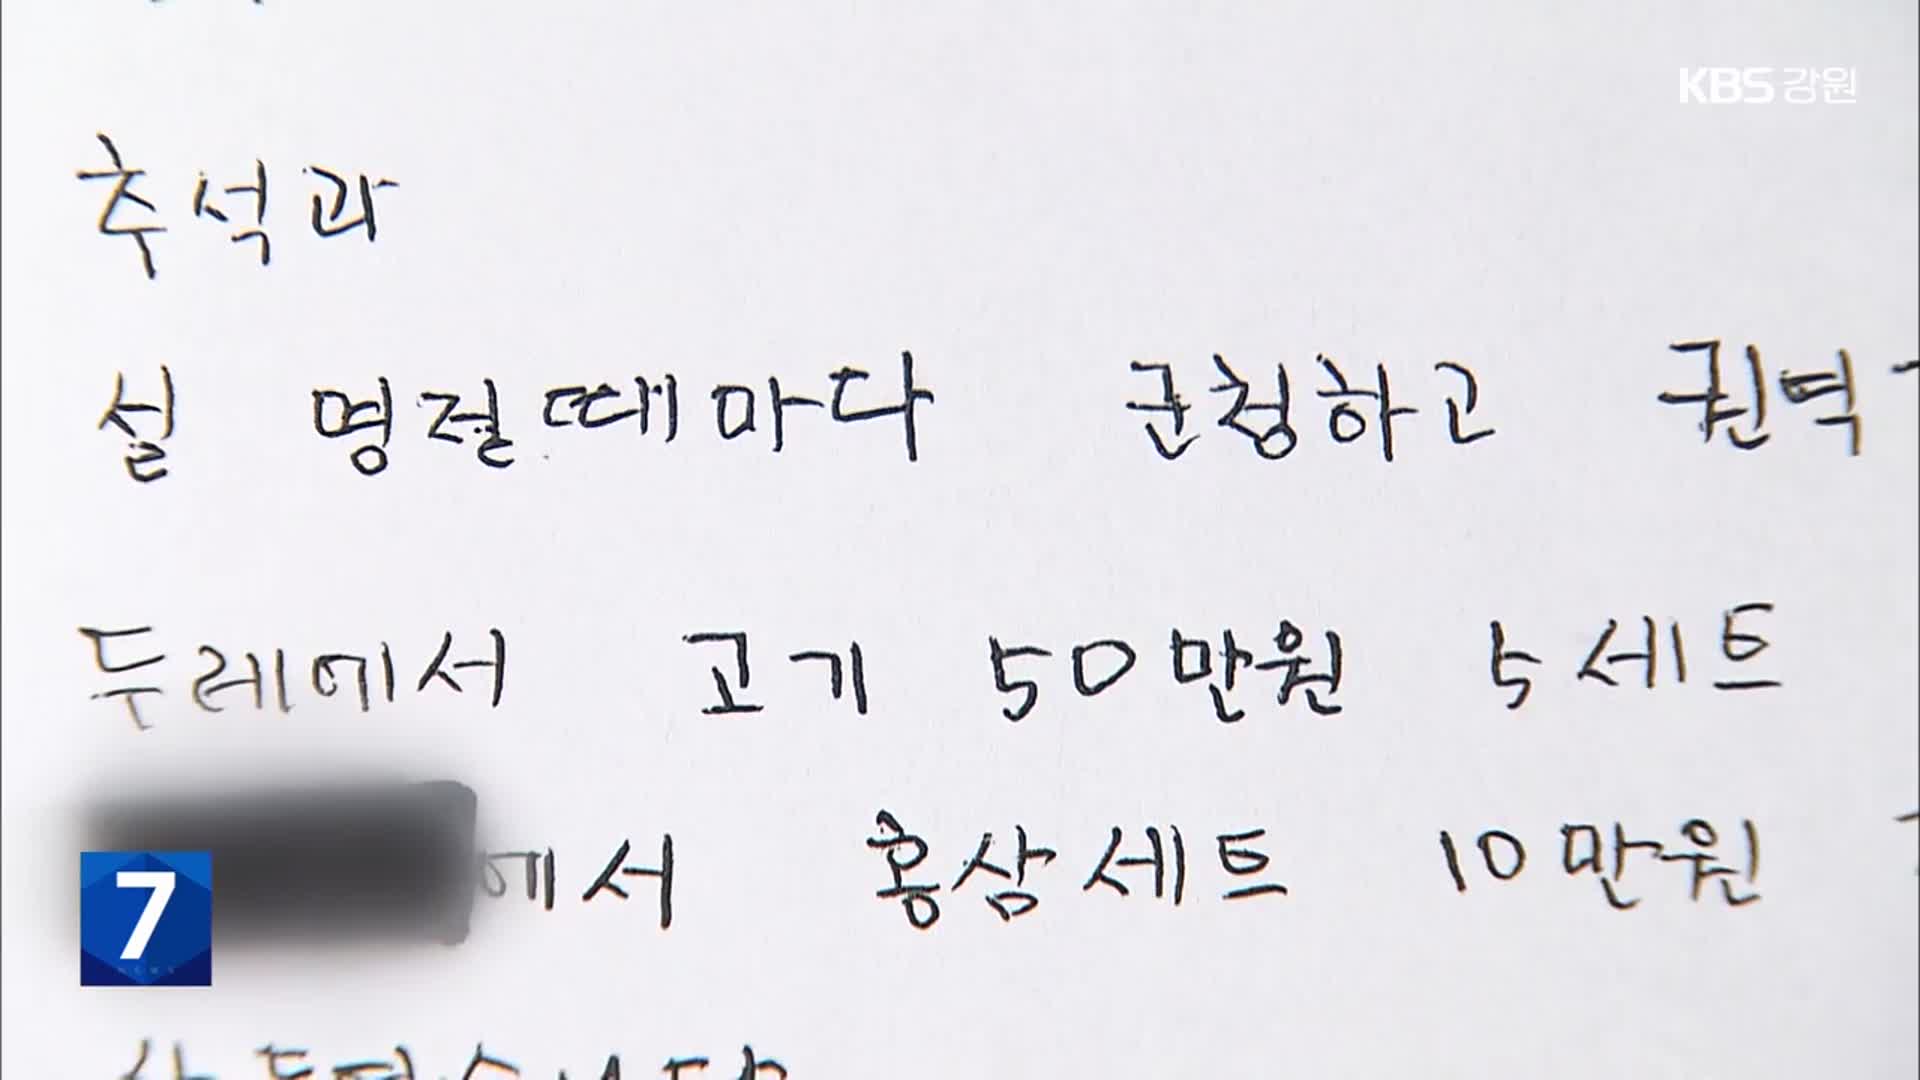 KBS 강원
추석과
설 명절때마다 군청하고 권역
두레에서 고기 50만원 5세트
에서 홍삼세트 10만원
7
NEWS